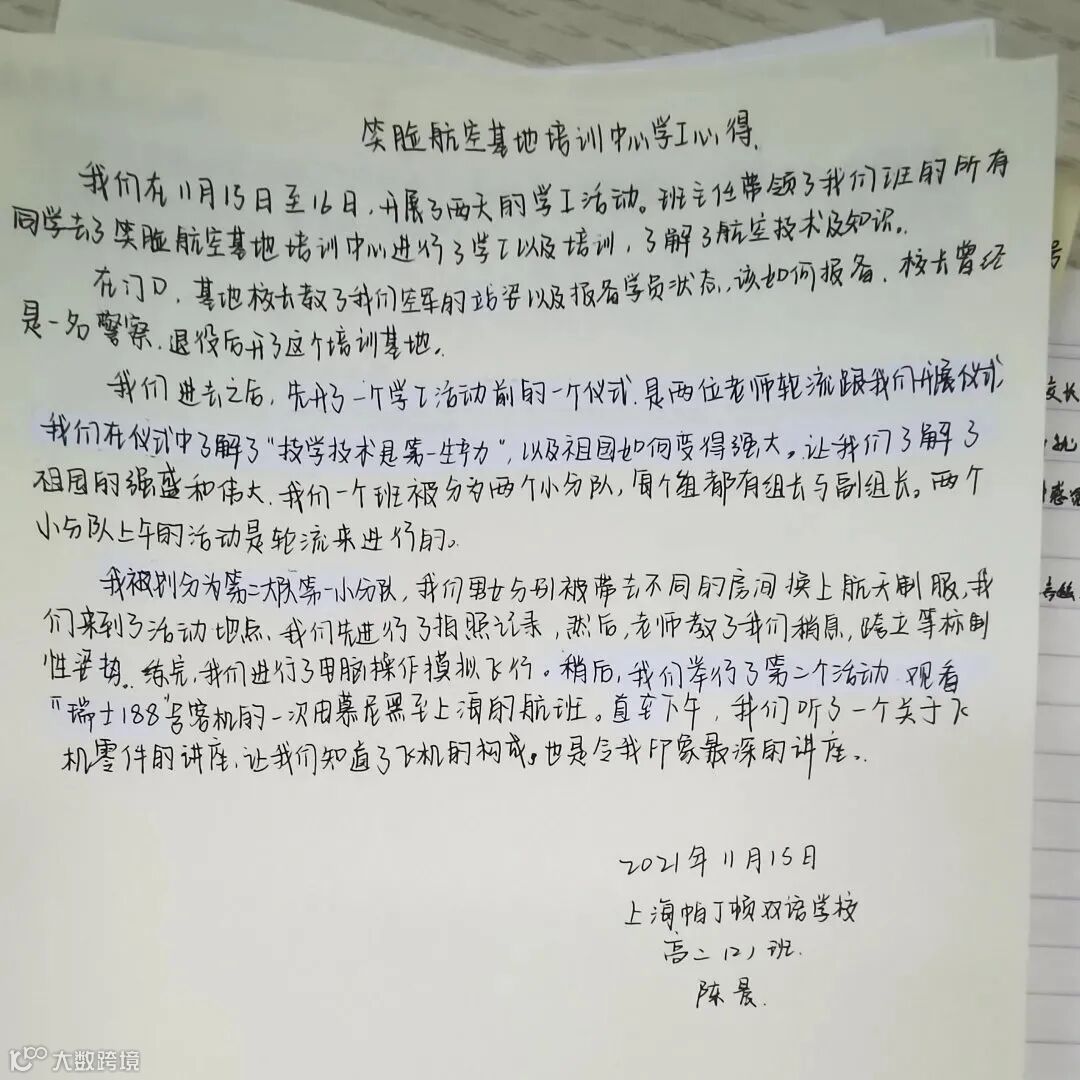 笑脸航空基地培训中心学工心得.
我们在11月15日至16日,开展了两天的学工活动。班主任带领了我们班的所有
同学去了笑脸航空基地培训中心进行了学工以及培训,了解了航空技术及知识。
在门口,基地校长教了我们空军的站姿以及报备学员状态,该如何报备.校长曾经
是一名警察.退役后开了这个培训基地。
我们进去之后,先开了一个学工活动前的一个仪式.是两位老师轮流跟我们开展仪式,
我们在仪式中了解了“技学技术是第一生产力”,以及祖国如何变得强大。让我们了解了
祖国的强盛和伟大.我们一个班被分为两个小分队,每个组都有组长与副组长。两个
小分队上午的活动是轮流来进行的。
我被划分为第二大队第一小分队,我们男女分别被带去不同的房间换上航天制服,我
们来到了活动地点.我们先进行了拍照记录,然后,老师教了我们稍息,跨立等标制
性姿势.练完,我们进行了电脑操作模拟飞行。稍后,我们举行了第二个活动.观看
“瑞士188”号客机的一次由慕尼黑至上海的航班。直至下午,我们听了一个关于飞
机零件的讲座,让我们知道了飞机的构成。也是令我印象最深的讲座。
2021年11月15日
上海帕丁顿双语学校
高二(2)班.
陈晨.
号
校长
大数跨境